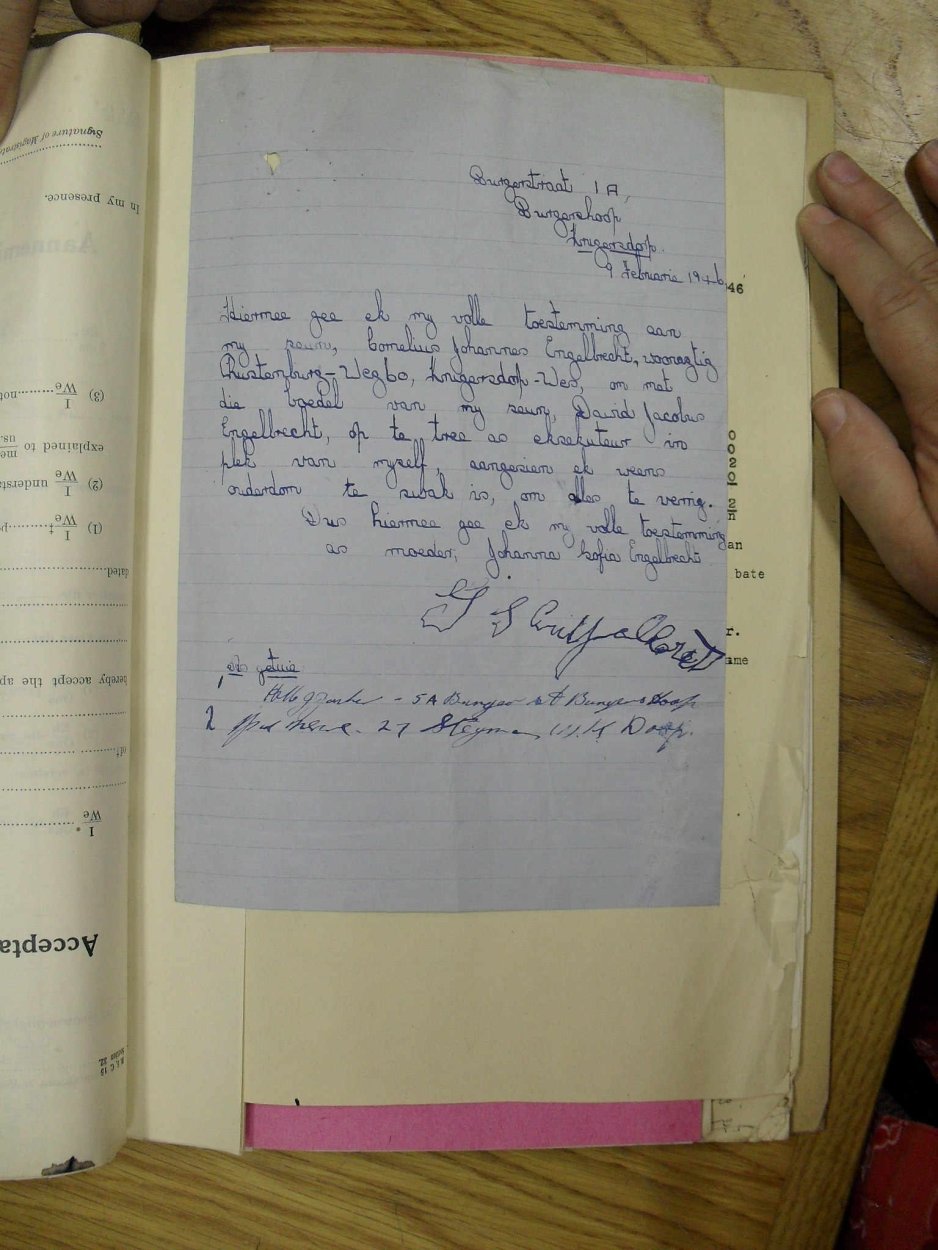 Burgerstraat 1A,
Burgershoop
Krugersdorp.
9 Februarie 1946
Hiermee gee ek my volle toestemming aan
my seun, Cornelius Johannes Engelbrecht, woonagtig
Rustenburg-Wegbo, Krugersdorp-Wes, om met
die boedel van my seun, David Jacobus
Engelbrecht, op te tree as eksekuteur in
plek van myself, aangesien ek weens
ouderdom te swak is, om alles te verrig.
Dus hiermee gee ek my volle toestemming
as moeder; Johanna Sofia Engelbrecht
As getuie
1 - 5A Burger St Burgershoop
2 27
46
0
0
2
0
2
n
an
bate
r.
ame
Signature of Magistrate
In my presence.
(3) I We not
explained to me us.
(2) I We understa
(1) I We
dated
hereby accept the ap
I We
Accepta